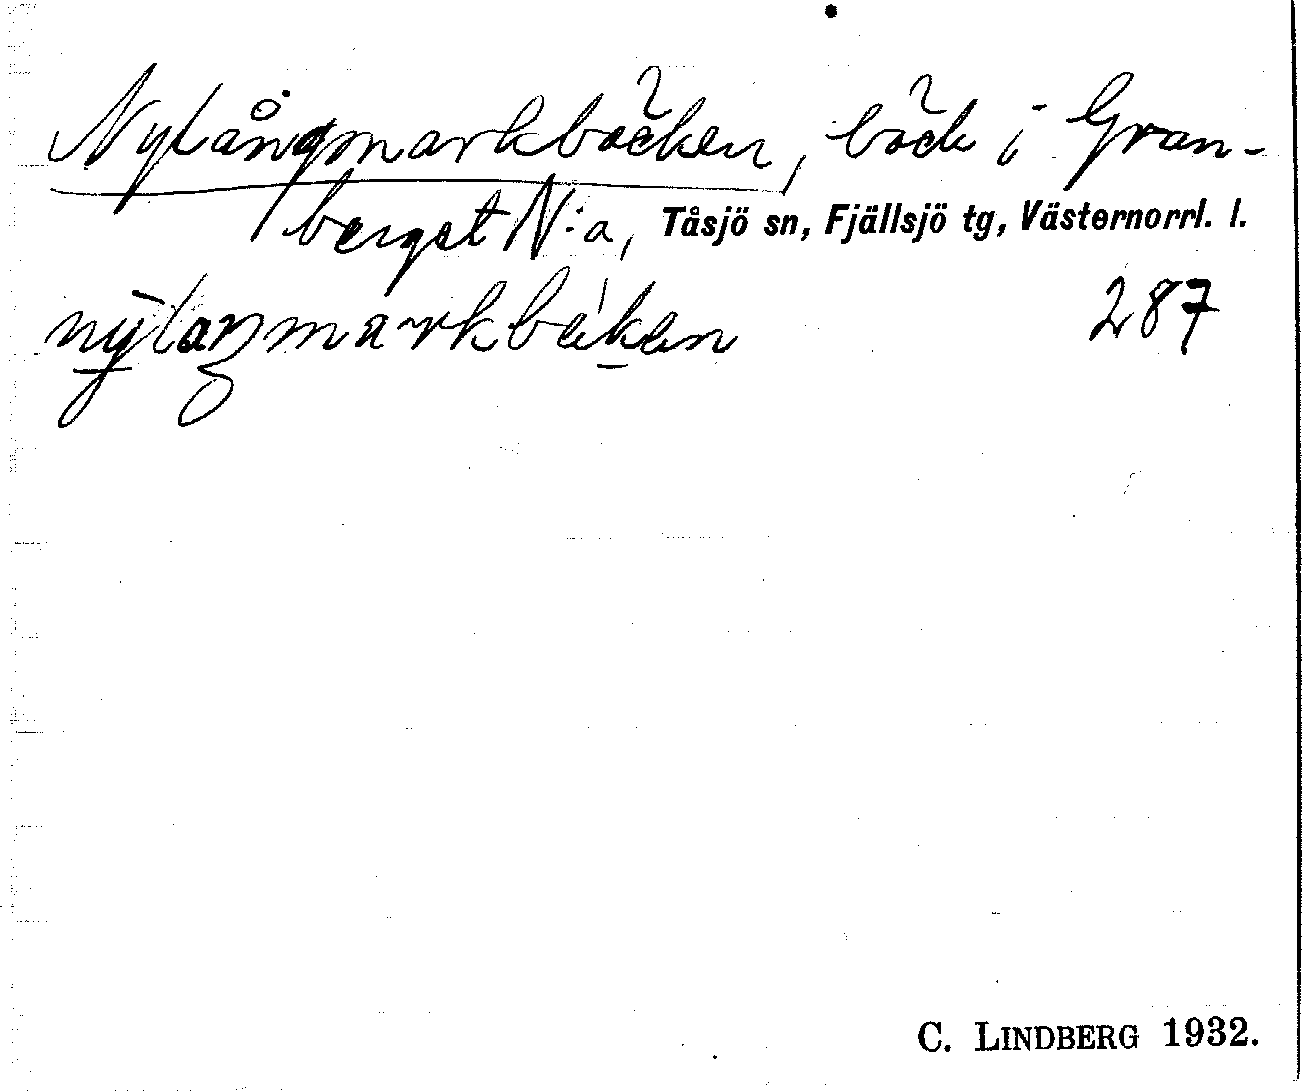 Nylångmarkbäcken, bäck i Gran-
berget N:a, Tåsjö sn, Fjällsjö tg, Västernorrl. l.
287
C. LINDBERG 1932.